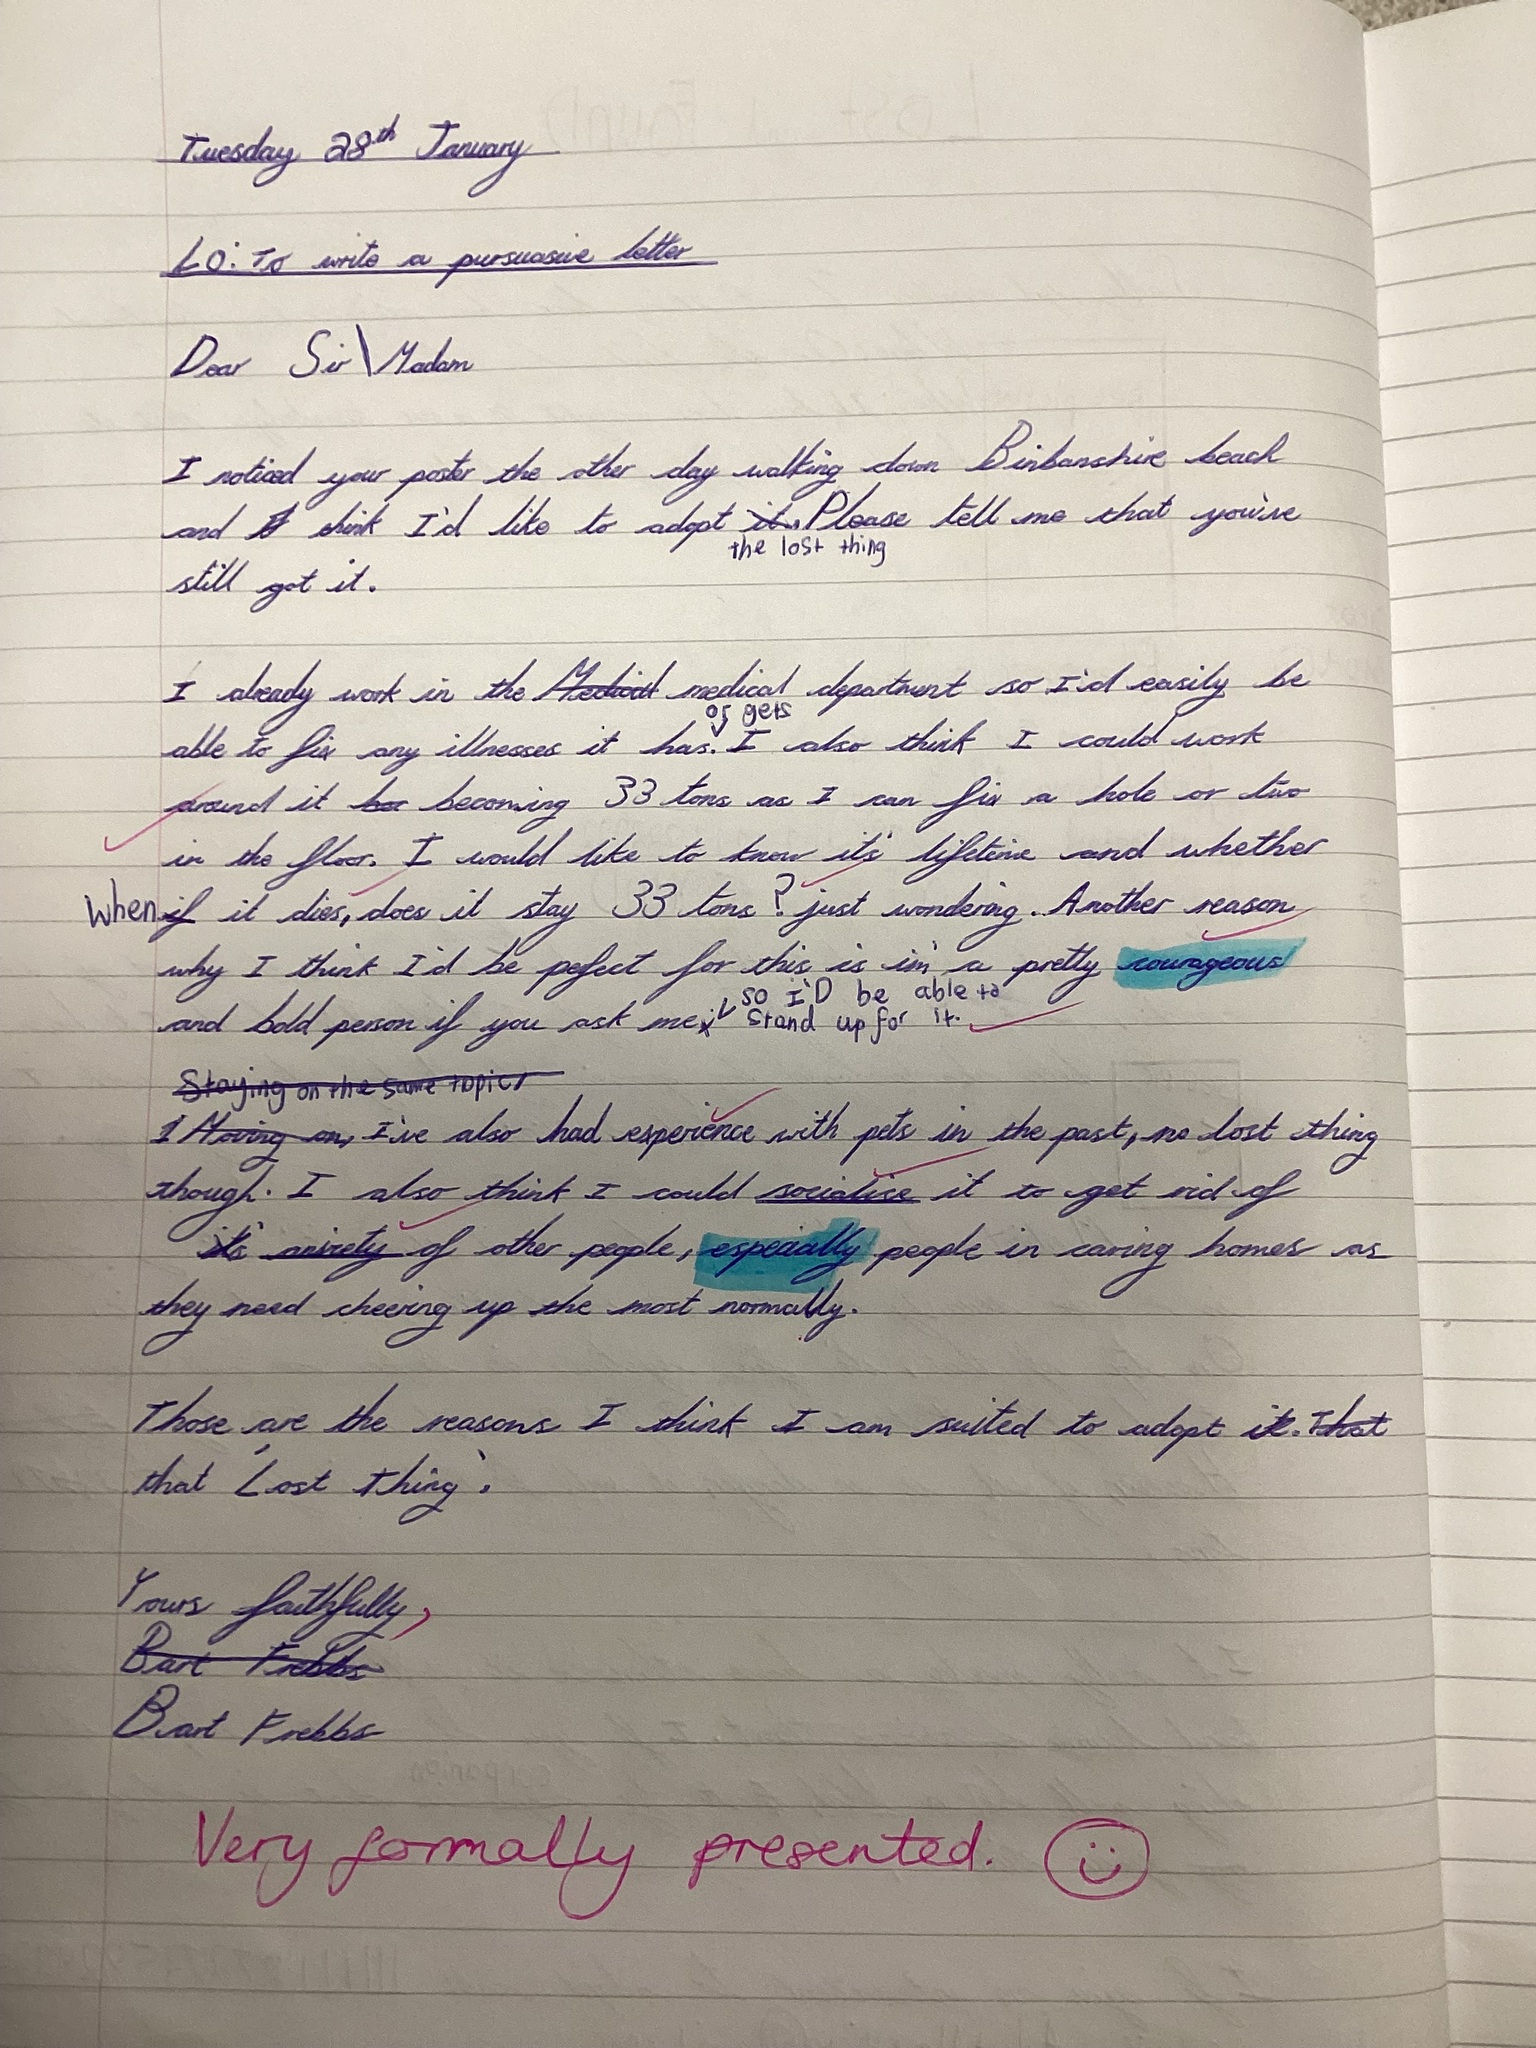 Tuesday 28th January
LO: To write a pursuasive letter
Dear Sir\Madam
I noticed your poster the other day walking down Binbanshire beach
and I think I'd like to adopt it. Please tell me that you've
the lost thing
still got it.
I already work in the Medical medical department so I'd easily be
or gets
able to fix any illnesses it has. I also think I could work
around it becoming 33 tons as I can fix a hole or two
in the floor. I would like to know it's lifetime and whether
When if it dies, does it stay 33 tons? just wondering. Another reason
why I think I'd be pefect for this is im' a pretty courageous
so I'D be able to
and bold person if you ask me. stand up for it.
Staying on the same topic,
1 Moving on, I've also had experience with pets in the past, no lost thing
though. I also think I could socialise it to get rid of
it's anxiety of other people, especially people in caring homes as
they need cheering up the most normally.
Those are the reasons I think I am suited to adopt it. That
that 'Lost Thing'.
Yours faithfully,
Bart Frebbs
Bart Frebbs
Very formally presented.